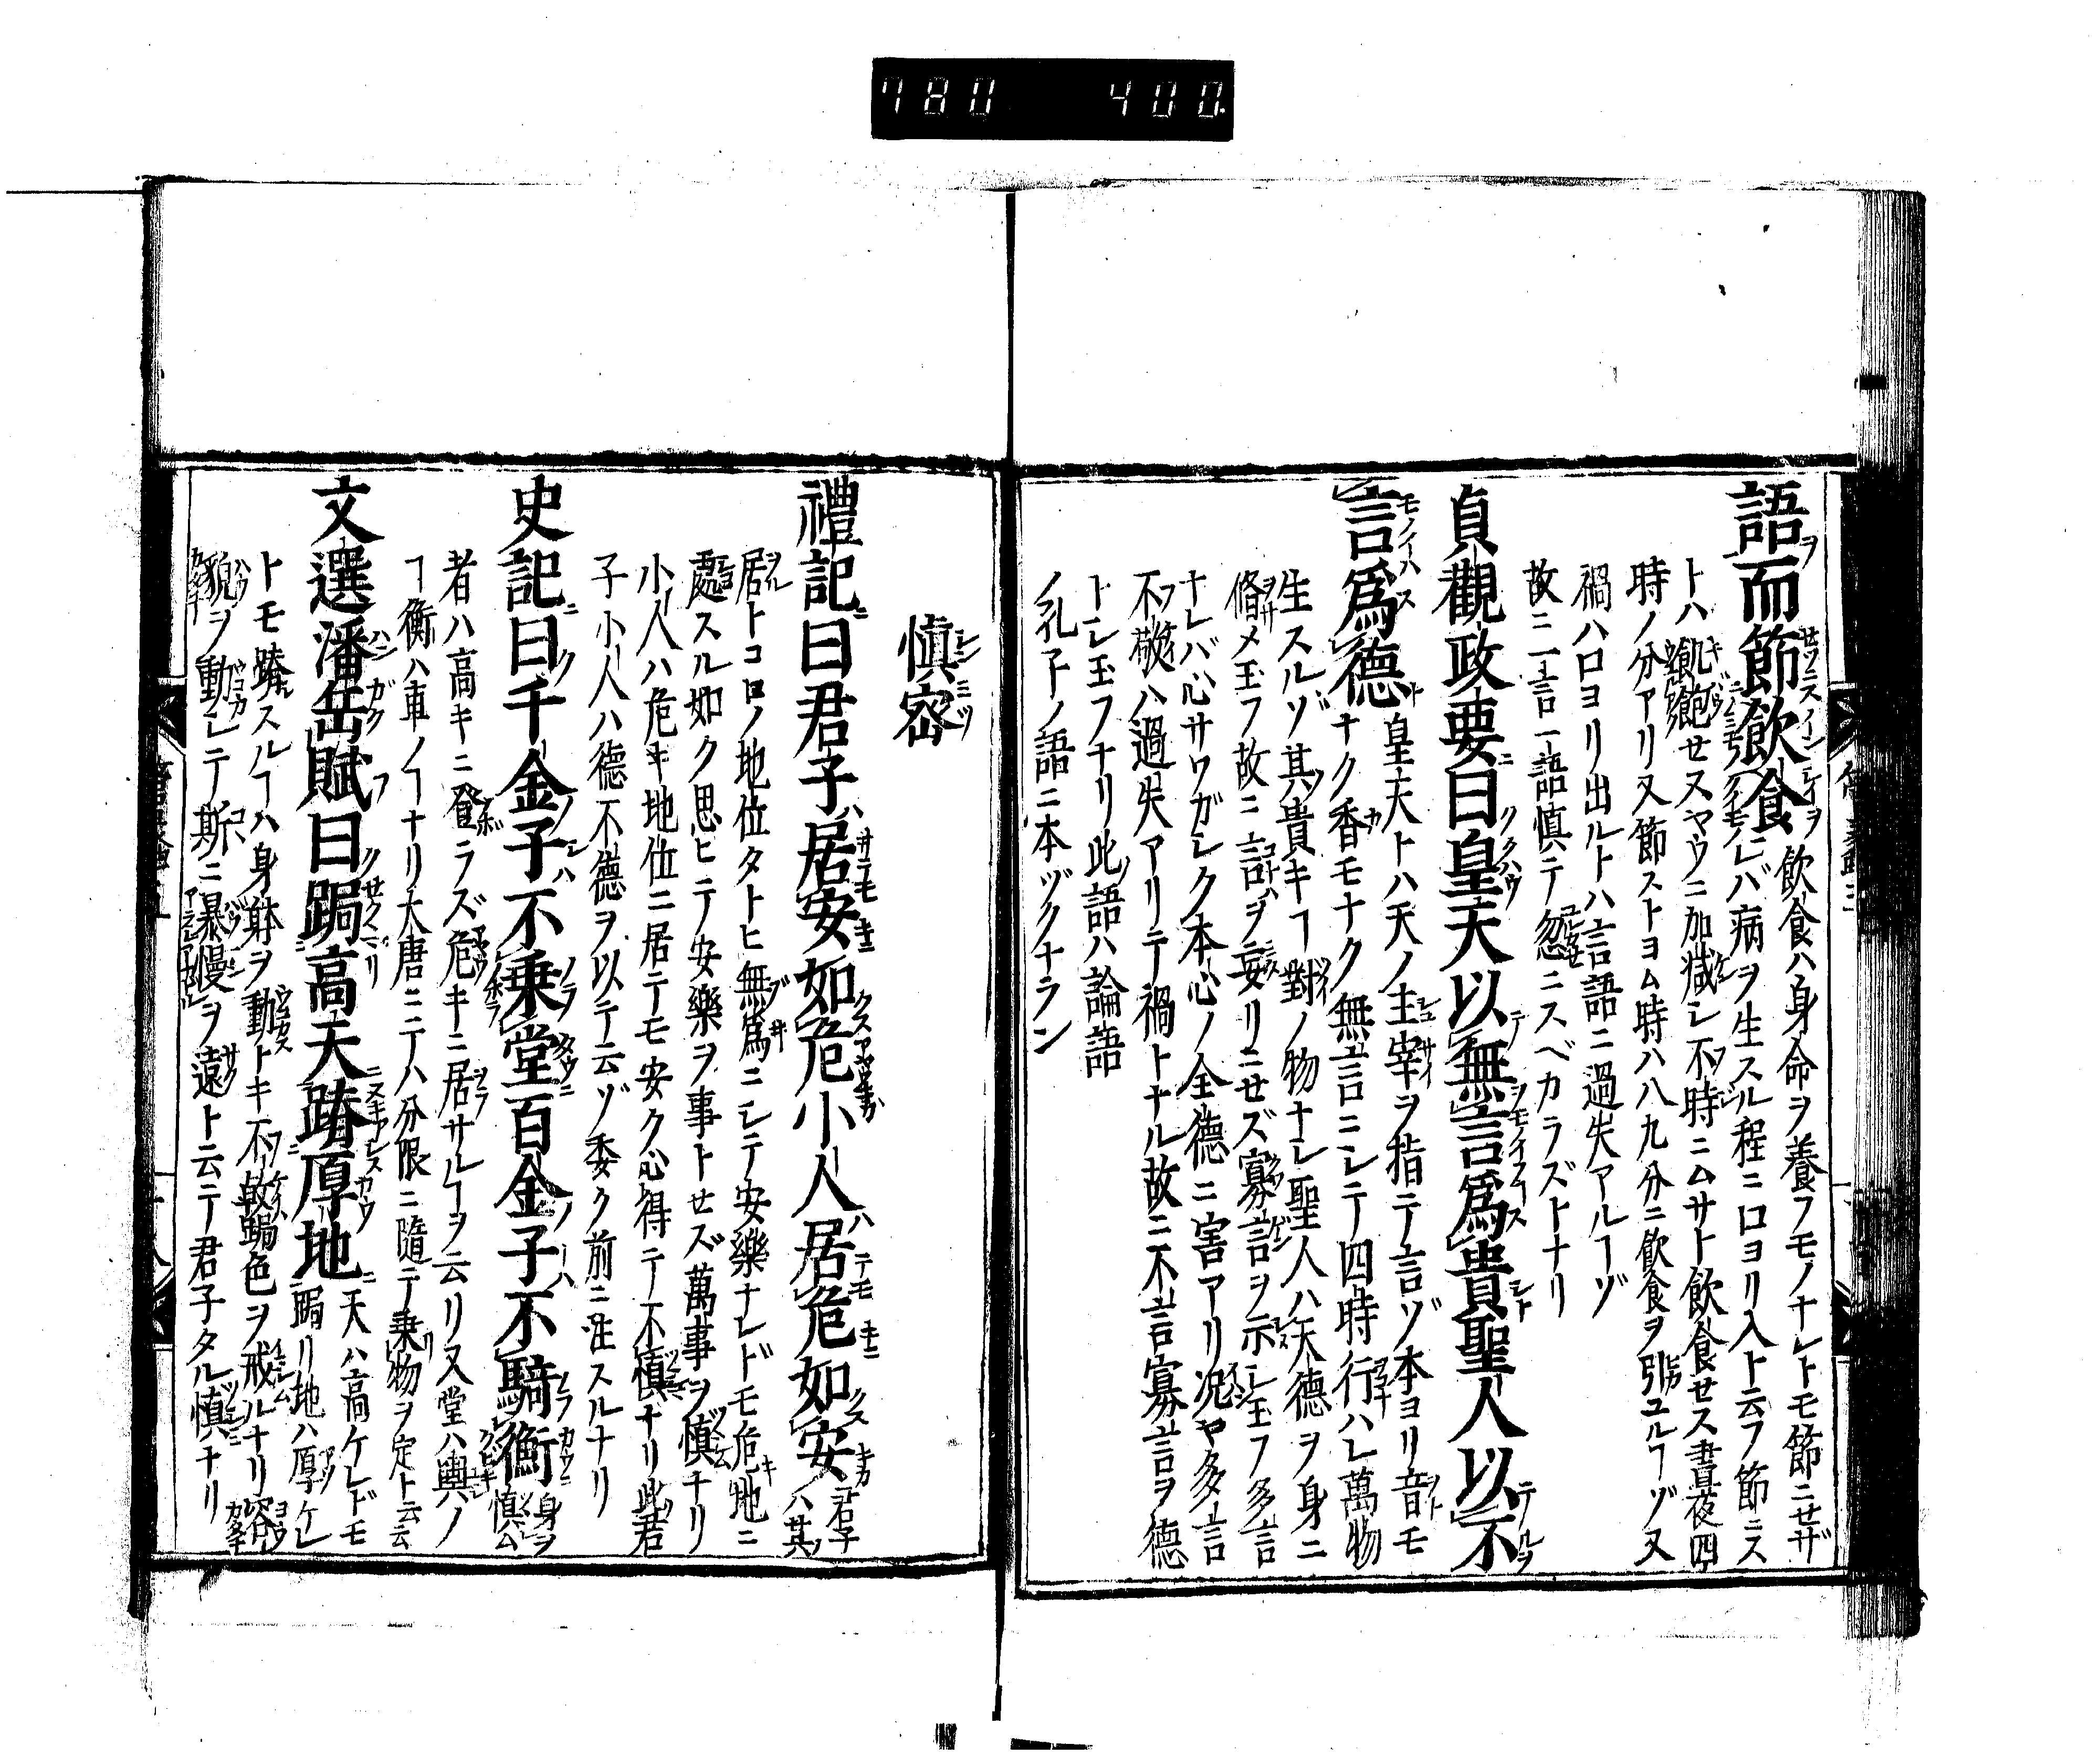 780 400
語而節飲食飲食ハ身命ヲ養フモノナレトモ節ニせザ
レバ病ヲ生スル程ニ口ヨリ入ト云フ節ニス
トハ飢飽せスヤウニ加減シ不時ニムサト飲食せス晝夜四
時ノ分アリ又節ストヨム時ハ八九分ニ飲食ヲ引ユルヿヅ又
禍ハ口ヨリ出ルトハ言語ニ過失アルヿゾ
故ニ一言一語慎テ忽ニスベカラズトナリ
貞觀政要曰皇天以無言爲貴聖人以不
言爲德皇天トハ天ノ主宰ヲ指テ言ゾ本ヨリ音モ
ナク香モナク無言ニシテ四時行ハレ萬物
生スルゾ其貴キヿ對ノ物ナシ聖人ハ天德ヲ身ニ
脩メ玉フ故ニ言ヲ妄リニせズ寡言ヲ示シ玉フ多言
ナレバ心サワガシク本心ノ全德ニ害アリ况ヤ多言
不敬ハ過失アリテ禍トナル故ニ不言寡言ヲ德
トシ玉フナリ此語ハ論語
ノ孔子ノ語ニ本ヅクナラン
慎密
禮記曰君子居安如危小人居危如安君子ハ其
居トコロノ地位タトヒ無爲ニシテ安樂ナレドモ危地ニ
處スル如ク思ヒテ安樂ヲ事トせズ萬事ヲ慎ナリ
小人ハ危キ地位ニ居テモ安ク心得テ不慎ナリ此君
子小人ハ德不德ヲ以テ云ゾ委ク前ニ注スルナリ
史記曰千金子不乗堂百金子不騎衡身ヲ慎ム
者ハ高キニ登ラズ危キニ居サルヿヲ云リ又堂ハ輿ノ
ヿ衡ハ車ノヿナリ大唐ニテハ分限ニ隨テ乗物ヲ定ト云云
文選潘岳賦曰跼高天蹐厚地天ハ高ケレドモ跼リ地ハ厚ケレ
トモ蹐スルヿハ身躰ヲ動トキ不敬跼色ヲ戒ルナリ容
貌ヲ動シテ斯ニ暴慢ヲ遠ト云テ君子タル慎ナリ